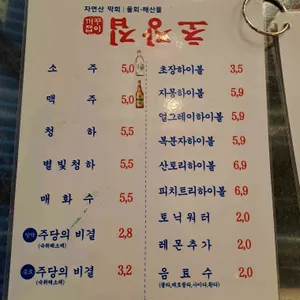 자연산 막회 | 물회·해산물
꺼꾸리 초장집
소 주 5,0
맥 주 5,0
청 하 5,5
별빛청하 5,5
매 화 수 5,5
주당의 비결 2,8
(숙취해소제)
주당의 비결 3,2
(숙취해소제)
초장하이볼 3,5
자몽하이볼 5,9
얼그레이하이볼 5,9
복분자하이볼 5,9
산토리하이볼 6,9
피치트리하이볼 6,9
토닉워터 2,0
레몬추가 2,0
음 료 수 2,0